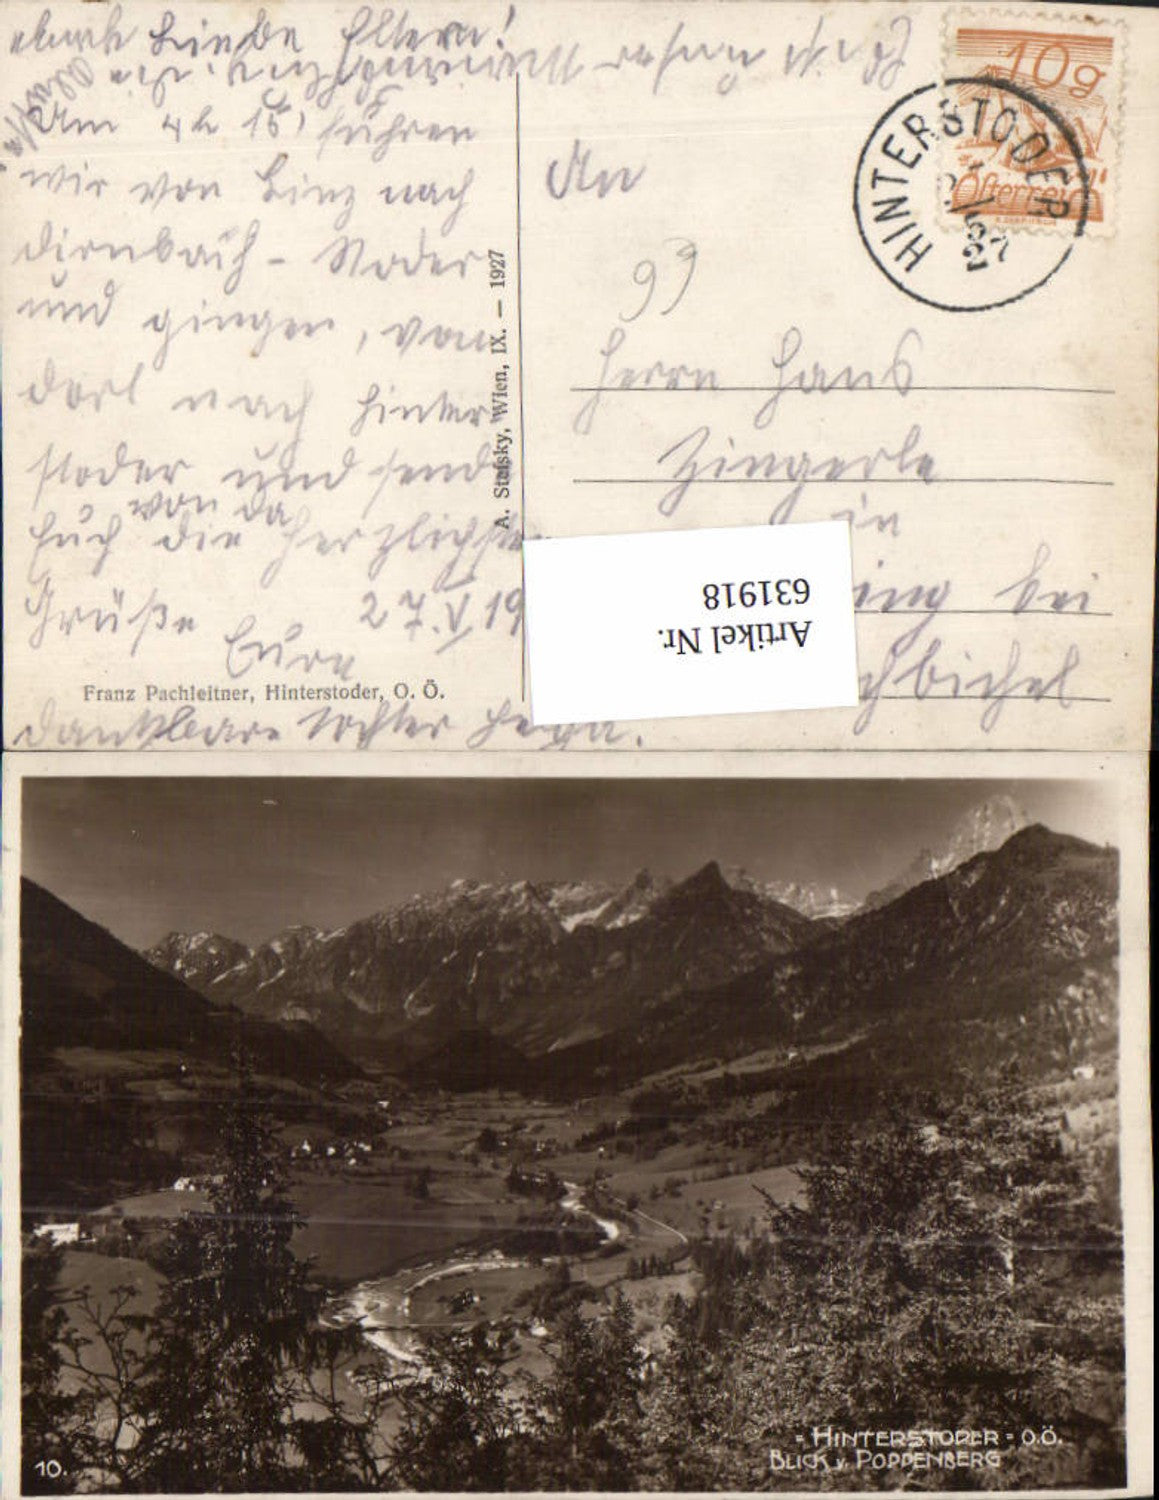 Liebe Eltern!
Um 4h 15' fuhren
wir von Linz nach
Dirnbach - Stoder
und gingen, von
dort nach Hinter
stoder und sende
von da
Euch die herzlichsten
Grüße 27.V 19
Eure
dankbare Tochter
Franz Pachleitner, Hinterstoder, O. Ö.
A. Stefsky, Wien, IX. — 1927
10g
Österreich
HINTERSTODER
An
99
Herrn Hans
Zingerle
in
ing bei
chbichel
Artikel Nr.
631918
10.
- HINTERSTODER - O.Ö.
BLICK v. POPPENBERG